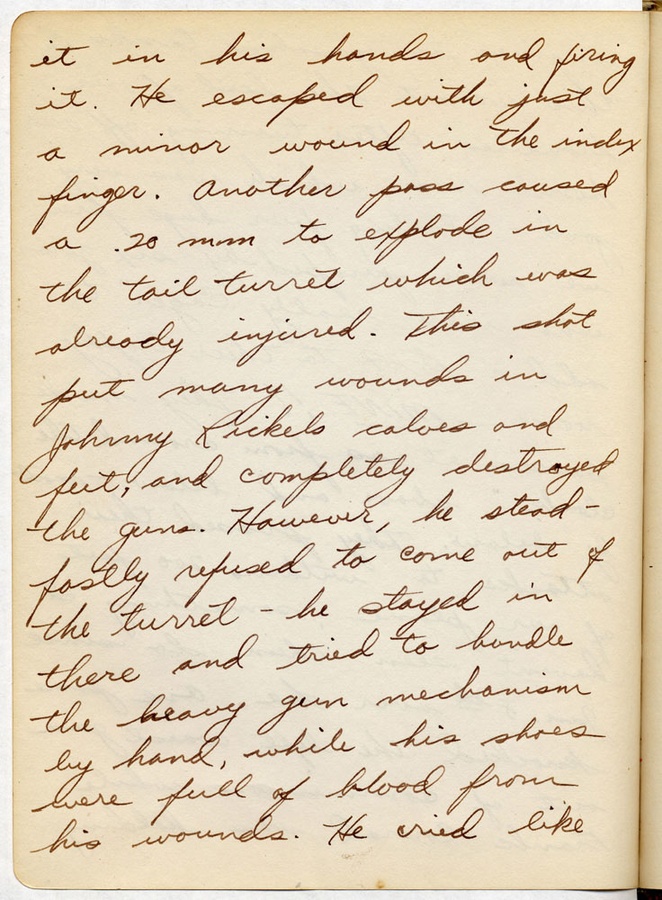 it in his hands and firing
it. He escaped with just
a minor wound in the index
finger. Another pass caused
a .20 mm to explode in
the tail turret which was
already injured. This shot
put many wounds in
Johnny Rickels calves and
feet, and completely destroyed
the guns. However, he stead-
fastly refused to come out of
the turret - he stayed in
there and tried to handle
the heavy gun mechanism
by hand, while his shoes
were full of blood from
his wounds. He cried like